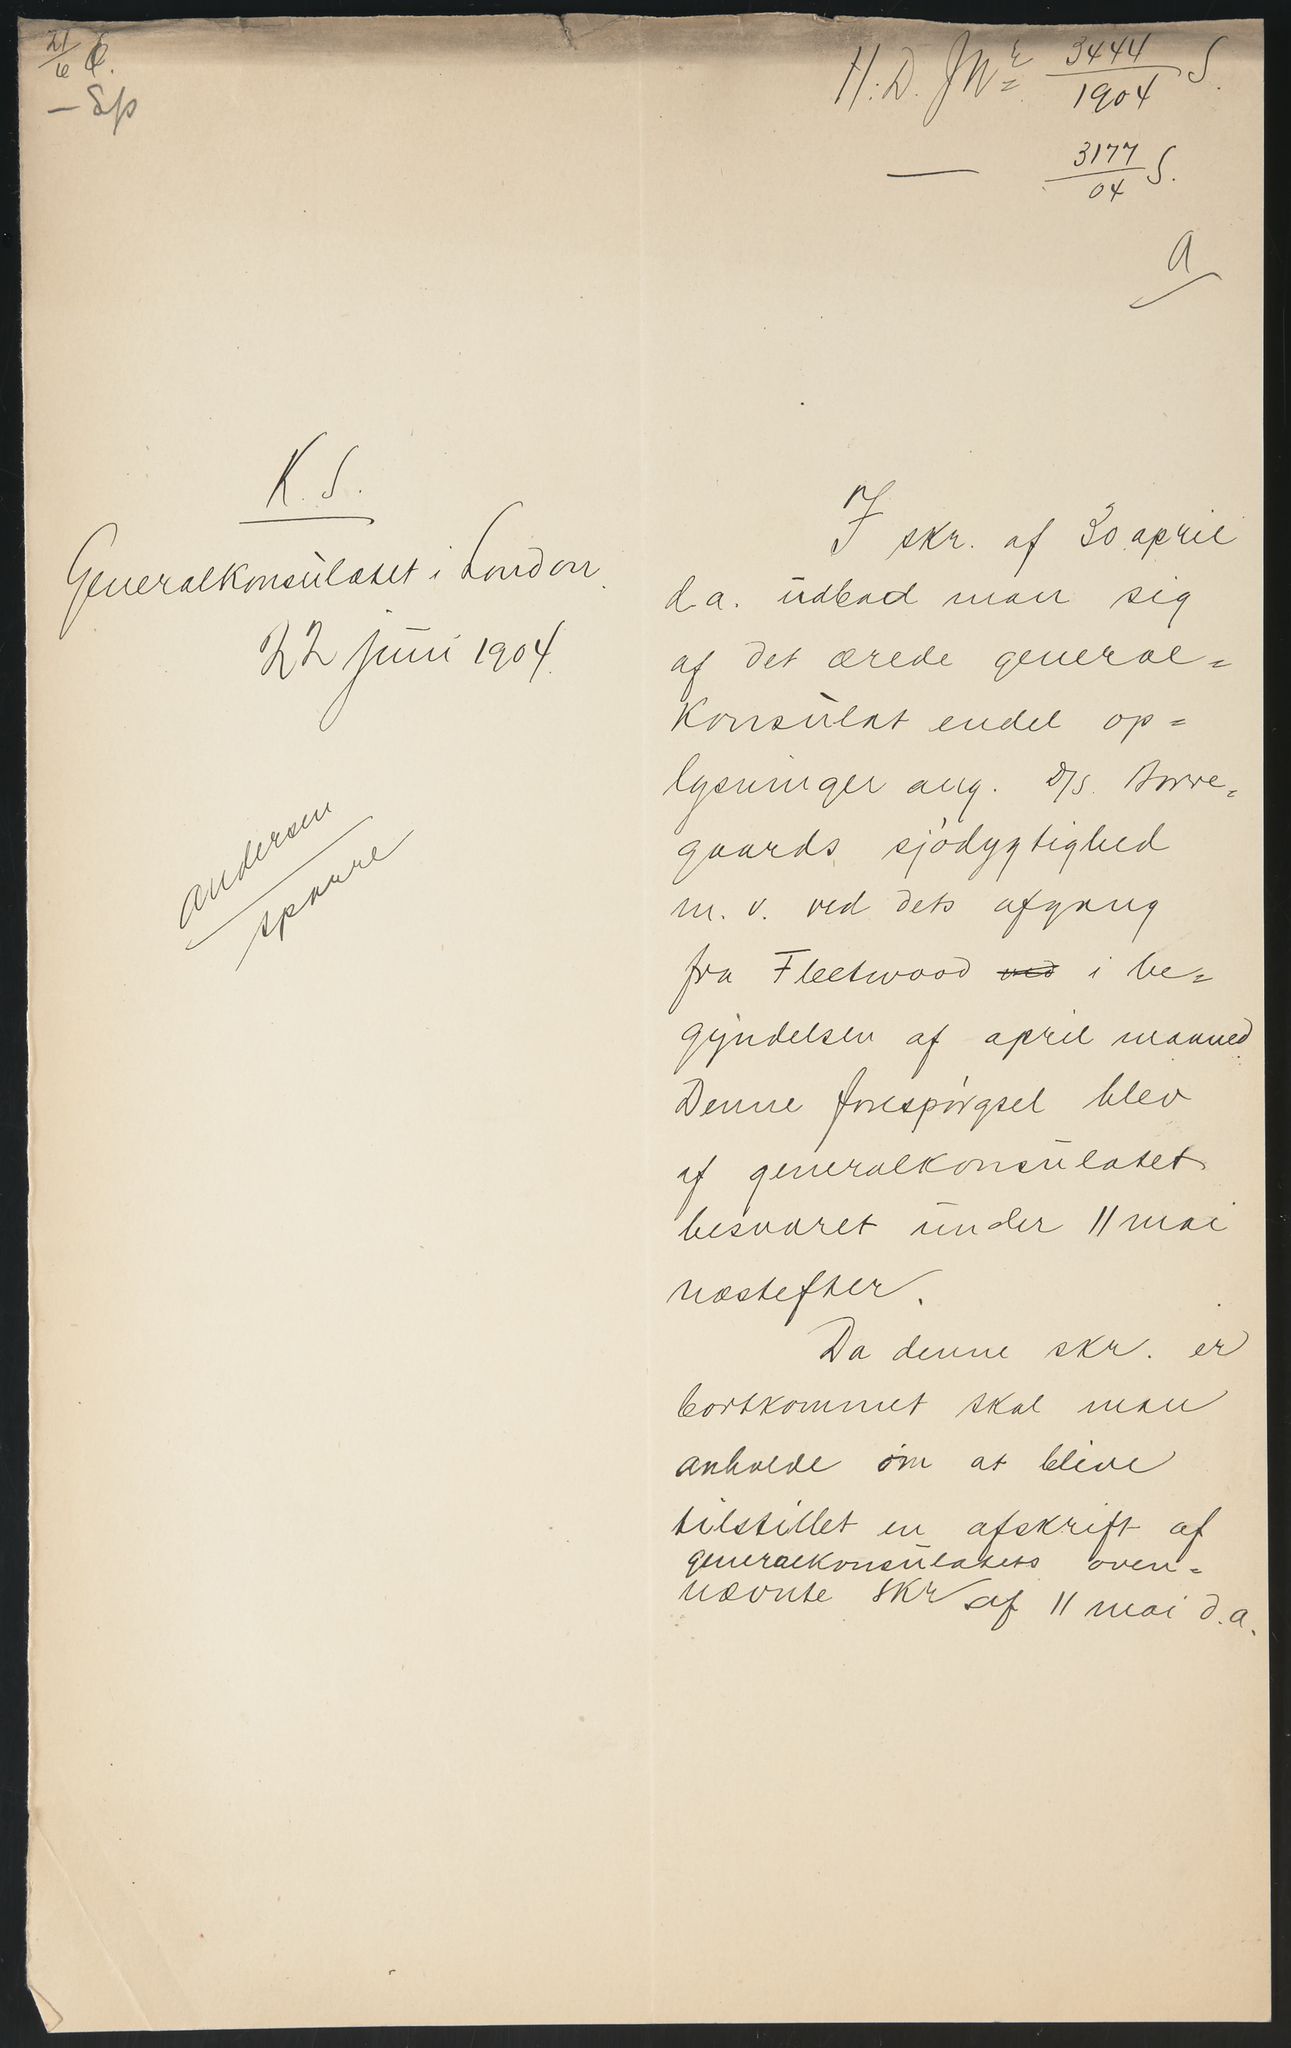 21/6 Q.
— Sp
H. D. J Nr. 3444/1904 S.
— 3177/04 S.
a
K. S.
Generalkonsulatet i London.
22 juni 1904.
Andersen
Sparre
I skr. af 30 april
d. a. udbad man sig
af det ærede general=
konsulat endel op=
lysninger ang. D/S. Norre=
gaards sjödygtighed
m. v. ved dets afgang
fra Fleetwood ved i be=
gyndelsen af april maaned.
Denne forespörgsel blev
af generalkonsulatet
besvaret under 11 mai
næstefter.
Da denne skr. er
bortkommet skal man
anholde om at blive
tilstillet en afskrift af
generalkonsulatets oven=
nævnte skr af 11 mai d. a.